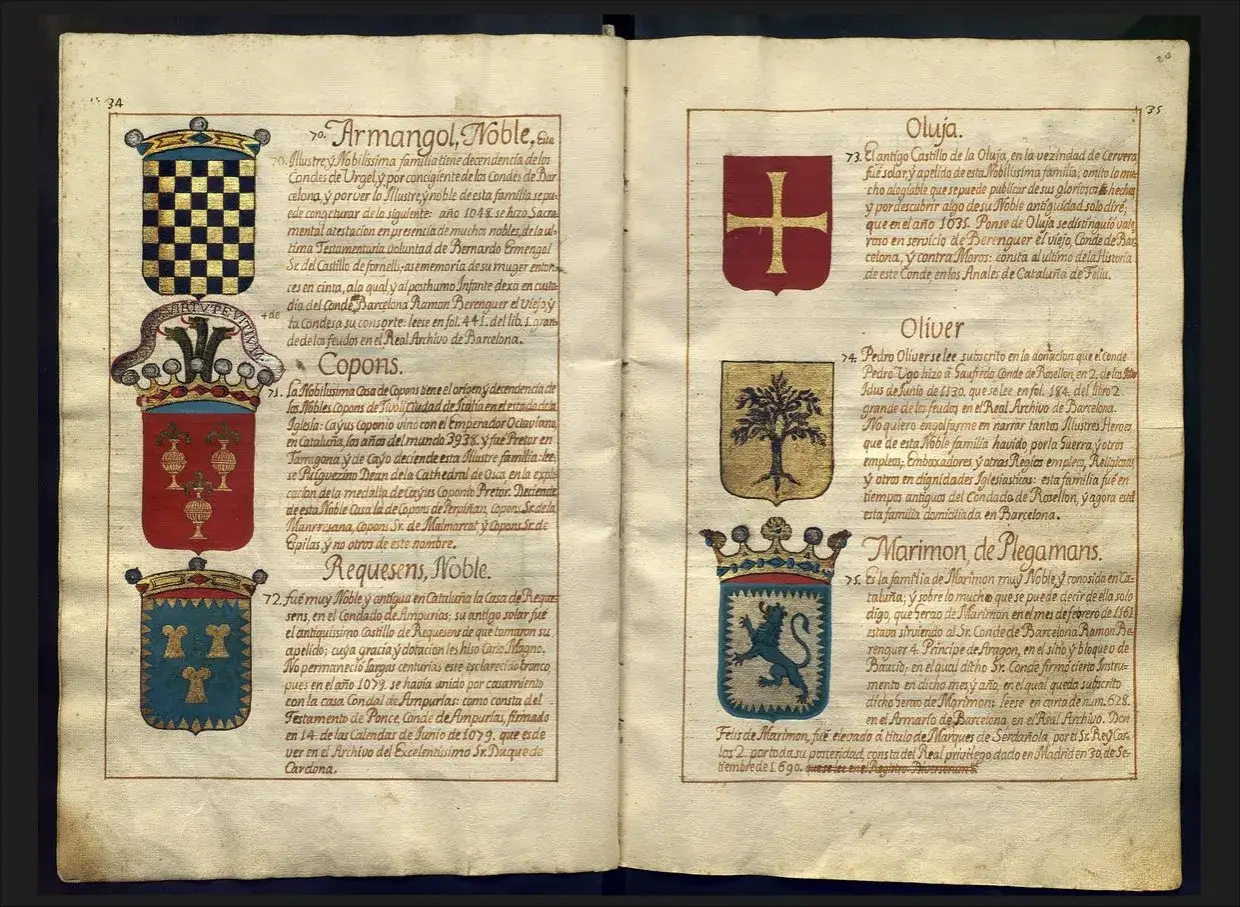 34
70. Armangol, Noble, Esta
Illustre, y Nobilissima familia tiene decendencia de los
Condes de Urgel, y por consigiente de los Condes de Bar
celona, y por ver lo Illustre, y noble de esta familia se pu-
ede congeturar de lo siguiente: año 1048. se hizo Sacra
mental atestacion en presencia de muchos nobles, de la ul-
tima Testamentaria voluntad de Bernardo Ermengol
Sr. del Castillo de fornells; ase memoria de su muger enton-
ces en cinta, a la qual, y al posthumo Infante dexa en custo
dia del Conde de Barcelona Ramon Berenguer el viejo, y
+de
la Condesa su consorte: leese en fol. 441. del lib. 1. gran-
de de los feudos en el Real Archivo de Barcelona.
VIRTVTE VITIVM
Copons.
71. La Nobilissima Casa de Copons tiene el origen, y decendencia de
los Nobles Copons de Tivoli, Ciudad de Italia en el estado de la
Iglesia: Cayus Coponio vino con el Emperador Octaviano,
en Cataluña, los años del mundo 3938. y fue Pretor en
Tarragona, y de Cayo deciende esta Illustre familia: lee-
se Puigvezino Dean de la Cathedral de Osca, en la expli
cacion de la medalla de Cayus Coponio Pretor. Deciende
de esta Noble Casa la de Copons de Perpiñan, Copons Sr. de la
Manresana, Copons Sr. de Malmarcat, y Copons Sr. de
Epilas, y no otros de este nombre.
Requesens, Noble.
72. fué muy Noble y antigua en Cataluña la Casa de Reque
sens, en el Condado de Ampurias; su antigo solar fué
el antiquissimo Castillo de Requesens de que tomaron su
apelido; cuya gracia, y dotacion les hiso Carlo Magno.
No permaneció largas centurias este esclarecido tronco,
pues en el año 1079. se havia unido por casamiento
con la casa Condal de Ampurias: como consta del
Testamento de Ponce, Conde de Ampurias, firmado
en 14. de las Calendas de Junio de 1079. que es de
ver en el Archivo del Excelentissimo Sr. Duque de
Cardona.
35
Oluja.
73. El antigo Castillo de la Oluja, en la vezindad de Cervera
fué solar, y apelido de esta Nobilissima familia; omito lo mu-
cho alogiable que se puede publicar de sus gloriosos hechos
y por descubrir algo de su Noble antiguidad solo diré,
que en el año 1035. Ponse de Oluja se distinguió vale
roso en servicio de Berenguer el viejo, Conde de Bar
celona, y contra Moros: consta al ultimo de la Historia
de este Conde, en los Anales de Cataluña de Feliu.
Oliver
74. Pedro Oliver se lee subscrito en la donacion que el Conde
Pedro Ugo hizo à Gaufredo Conde de Rosellon, en 2. de los
Idus de Junio de 1130. que se lee en fol. 184. del libro 2
grande de los feudos en el Real Archivo de Barcelona.
No quiero engolfarme en narrar tantos Illustres Heroes
que de esta Noble familia havido por la Guerra, y otros
empleos; Embaxadores, y otros Regios empleos, Religiosos
y otros en dignidades Iglesiasticas: esta familia fué en
tiempos antiguos del Condado de Rosellon, y agora està
esta familia domiciliada en Barcelona.
Marimon, de Plegamans.
75. Es la familia de Marimon muy Noble, y conosida en Ca-
taluña; y sobre lo mucho que se puede decir de ella solo
digo, que Gerao de Marimon en el mes de febrero de 1161
estava sirviendo al Sr. Conde de Barcelona Ramon Be-
renguer 4. Principe de Aragon, en el sitio, y bloqueo de
en el qual ditho Sr. Conde firmó cierto Instru-
mento en dicho mes, y año, en el qual queda subscrito
dicho Gerao de Marimon: leese en carta de num. 628.
en el Armario de Barcelona, en el Real Archivo. Don
Felis de Marimon, fué elevado à titulo de Marques de Serdañola, por el Sr. Rey Car-
los 2. por toda su posteridad, consta del Real privilegio dado en Madrid en 30. de Se-
tiembre de 1690. que se lee en el Registro Diversorum